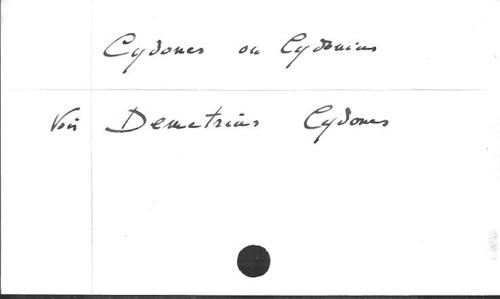 Cydones ou Cydonius
Voir Demetrius Cydones